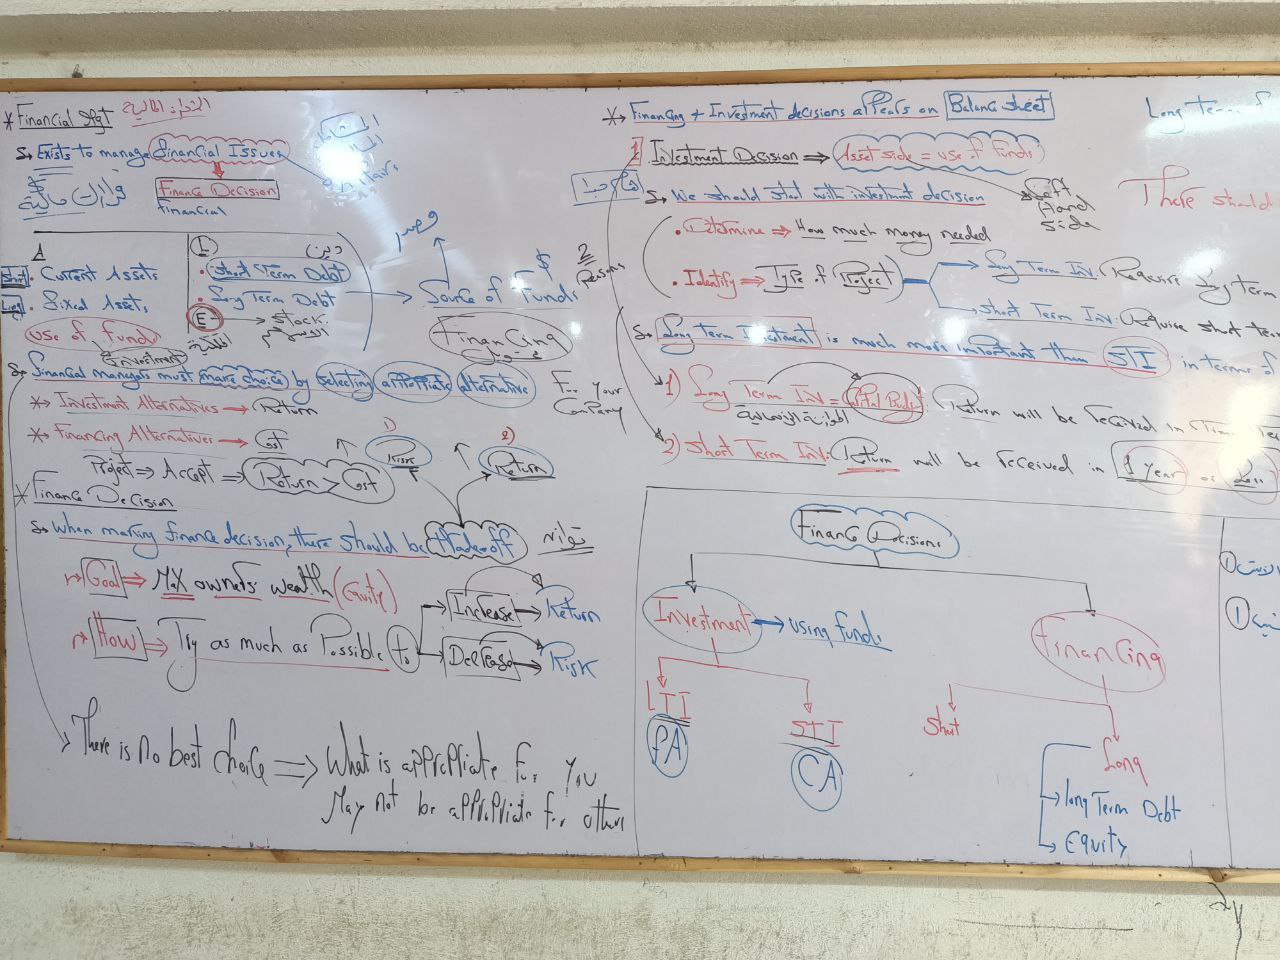 * Financial Mgt الإدارة المالية
Exists to manage Financial Issues
Finance Decision
Financial
قرارات مالية
$
A
L
دين
Short. Current Assets
Long. Fixed Assets
Short Term Debt
Long Term Debt
E → Stock
الملكية الأسهم
use of Funds
Investment
Source of Funds
$
مصدر
2 Persons
Financing
تمويل
Financial managers must make choice by selecting appropriate alternative For your Company
** Investment Alternatives → Return
** Financing Alternatives → Cost
Project ⇒ Accept ⇒ Return > Cost
1) Risk
2) Return
* Finance Decision
When making finance decision, there should be trade-off توازن
Goal ⇒ Max owners wealth (Equity)
How ⇒ Try as much as Possible to
Increase → Return
Decrease → Risk
There is no best choice ⇒ What is appropriate for you
May not be appropriate for others
* Financing + Investment decisions appears on Balance sheet
1 Investment Decision ⇒ Asset side = use of funds
Left Hand Side
We should start with investment decision
• Determine ⇒ How much money needed
• Identify ⇒ Type of Project
Long Term Inv. Require long term
short Term Inv. Require short term
Long term Investment is much more important than STI in terms of
1) Long Term Inv = Capital Budget. Return will be received in
2) Short Term Inv. Return will be received in 1 year or Less
Long Term F
There should
Finance Decisions
Investment → using funds
Financing
LTI
FA
STI
CA
Short
Long
→ long Term Debt
→ Equity